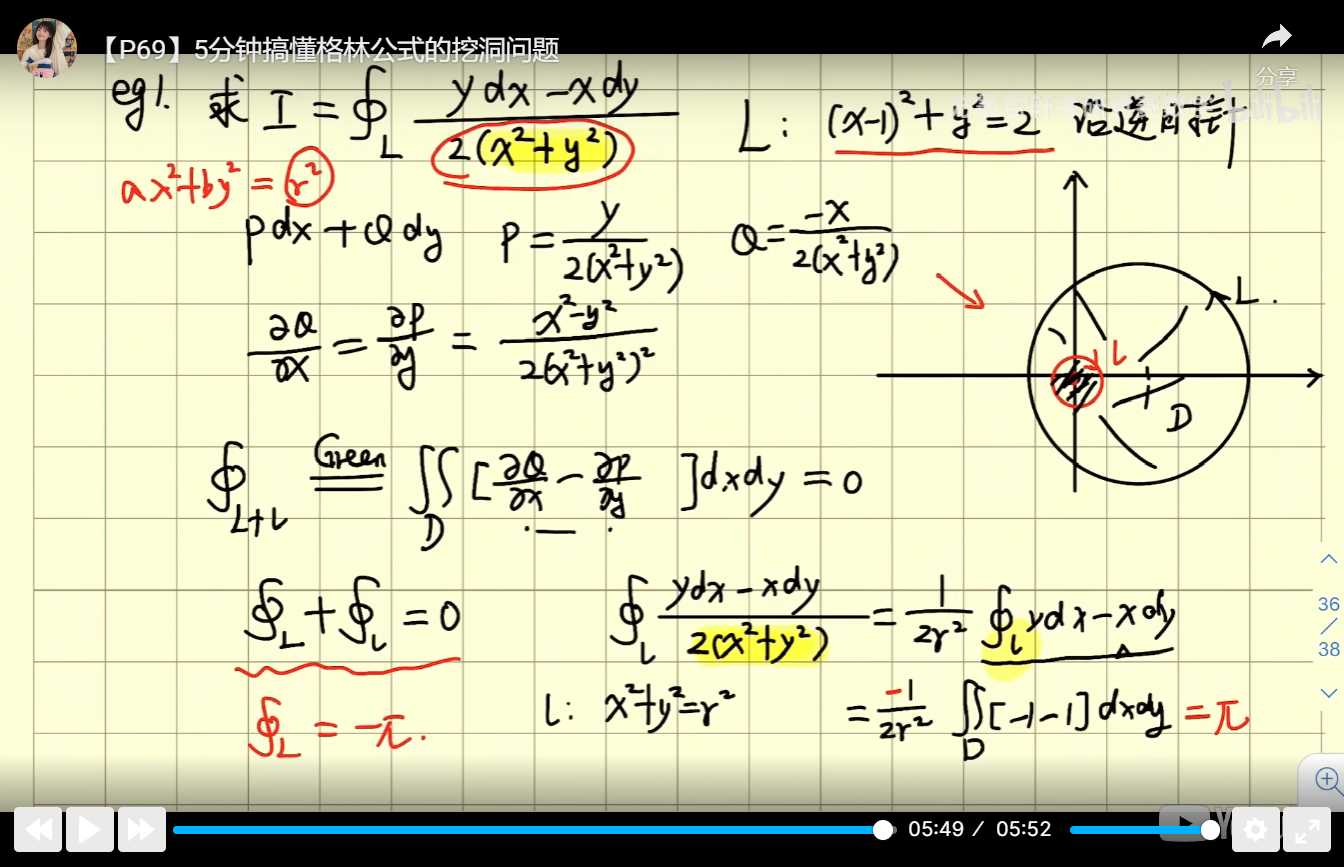 【P69】5分钟搞懂格林公式的挖洞问题
分享
bilibili
eg1. 求 I = ∮_L (ydx - xdy) / (2(x²+y²)) L: (x-1)²+y²=2 沿逆时针
ax²+by² = r²
Pdx+Qdy P = y / (2(x²+y²)) Q = -x / (2(x²+y²))
∂Q/∂x = ∂P/∂y = (x²-y²) / (2(x²+y²)²)
L.
l
D
∮_{L+l} Green ∬_D [∂Q/∂x - ∂P/∂y ]dxdy = 0
∮_L + ∮_l = 0 ∮_l (ydx - xdy) / (2(x²+y²)) = 1/(2r²) ∮_l ydx - xdy
∮_L = -π. l: x²+y²=r² = -1/(2r²) ∬_D [-1-1]dxdy = π
36
/
38
05:49 / 05:52